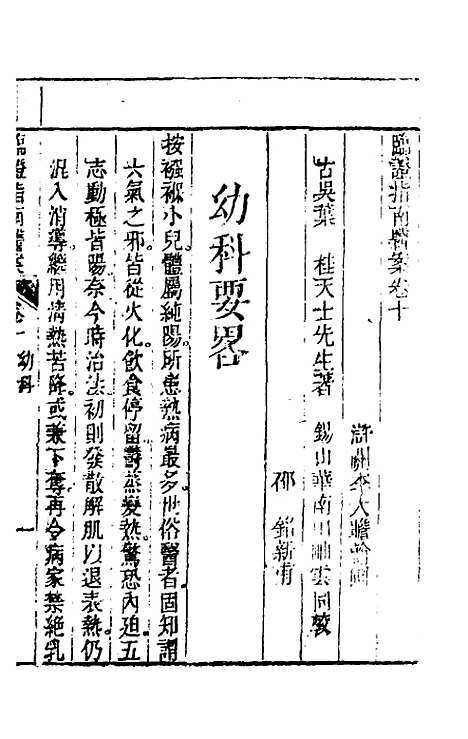 臨證指南醫案卷十
古吳葉　桂天士先生著　錫山華南田岫雲同較
李大瞻
邵　銘新甫
幼科要畧
按襁褓小兒體屬純陽所患熱病最多世俗醫者固知謂
六氣之邪皆從火化飲食停留鬱蒸變熱驚恐內迫五
志動極皆陽奈今時治法初則發散解肌以退表熱仍
混入消導繼用清熱苦降或兼下奪再令病家禁絕乳
臨證指南醫案　幼科　一